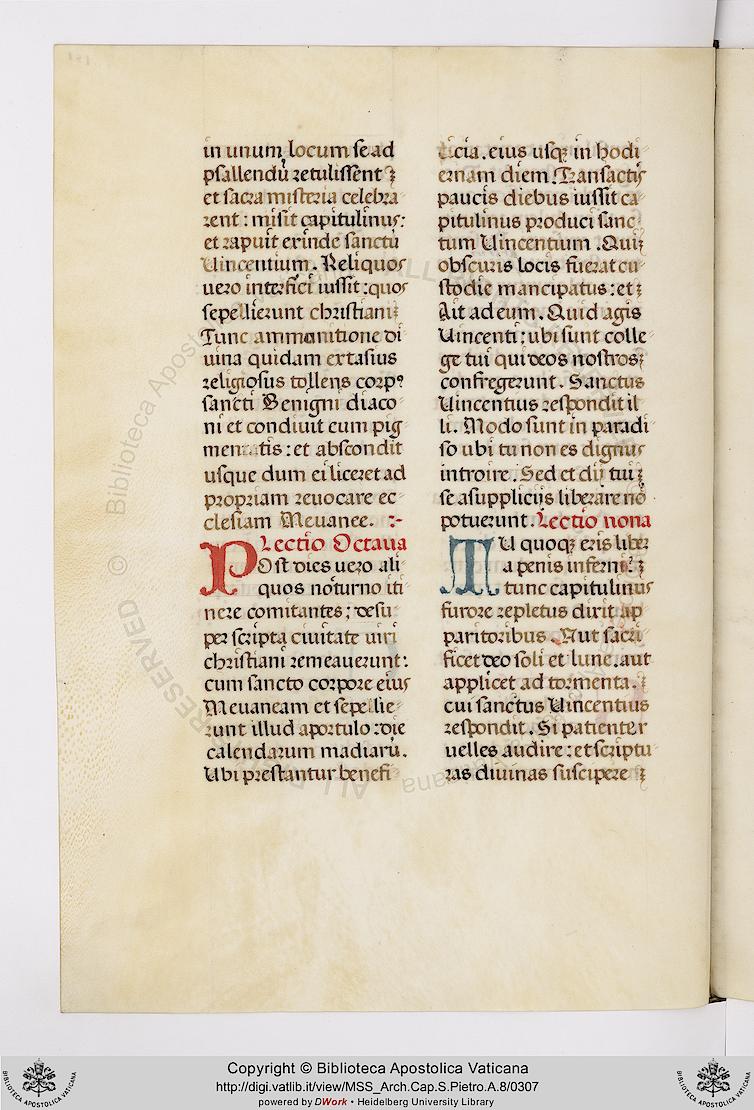 in unum locum se ad
psallendū retulissent ⁊
et sacra misteria celebra
rent : misit capitulinus:
et rapuit exinde sanctū
Uincentium . Reliquos
uero interfici iussit : quos
sepellierunt christiani ⁊
Tunc ammonitione di
uina quidam extasius
religiosus tollens corp⁹
sancti Benigni diaco
ni et condiuit eum pig
mentatis : et abscondit
usque dum ei liceret ad
propriam reuocare ec
clesiam Meuanee. :-
Lectio Octaua
POst dies uero ali
quos noturno iti
nere comitantes ; desu
per scripta ciuitate uiri
christiani remeauerunt :
cum sancto corpore eius
Meuaneam et sepellie
runt illud aportulo : die
calendarum madiarū .
Ubi prestantur benefi
ticia . eius usqꝫ in hodi
ernam diem . Transactis
paucis diebus iussit ca
pitulinus produci sanc
tum Uincentium . Qui ⁊
obscuris locis fuerat cu
stodie mancipatus : et ⁊
Ait ad eum . Quid agis
Uincenti : ubi sunt colle
ge tui qui deos nostros ⁊
confregerunt . Sanctus
Uincentius respondit il
li . Modo sunt in paradi
so ubi tu non es dignus
introire . Sed et dij tui ⁊
se a supplicijs liberare nō
potuerunt . Lectio nona
TU quoqꝫ eris liber
a penis inferni ⁊
tunc capitulinus
furore repletus dixit ap
paritoribus . Aut sacri
ficet deo soli et lune . aut
applicet ad tormenta . ⁊
cui sanctus Uincentius
respondit . Si patienter
uelles audire : et scriptu
ras diuinas suscipere ⁊
© Biblioteca Apostolica Vaticana
ALL RIGHTS RESERVED
Copyright © Biblioteca Apostolica Vaticana
http://digi.vatlib.it/view/MSS_Arch.Cap.S.Pietro.A.8/0307
powered by DWork • Heidelberg University Library
BIBLIOTECA APOSTOLICA VATICANA
BIBLIOTECA APOSTOLICA VATICANA